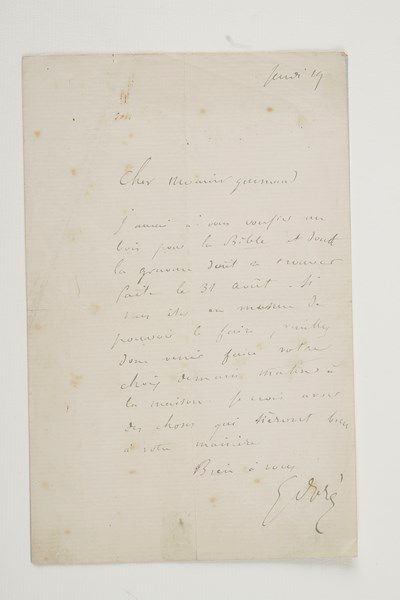 Jeudi 19
Cher Monsieur
J'aurai à vous confier un
bois pour la Bible et dont
la gravure doit se trouver
faite le 31 août. Si
vous êtes en mesure de
pouvoir le faire, veuillez
donc venir faire votre
choix demain matin à
la maison. Je crois avoir
des choses qui siéront bien
à votre manière
Bien à vous
G Doré